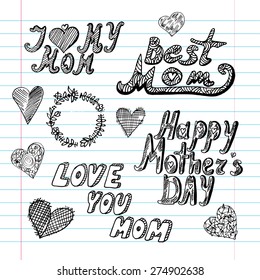 I MY
MOM
Best
Mom
Happy
Mother's
DAY
LOVE
YOU
MOM
shutterstock.com · 274902638